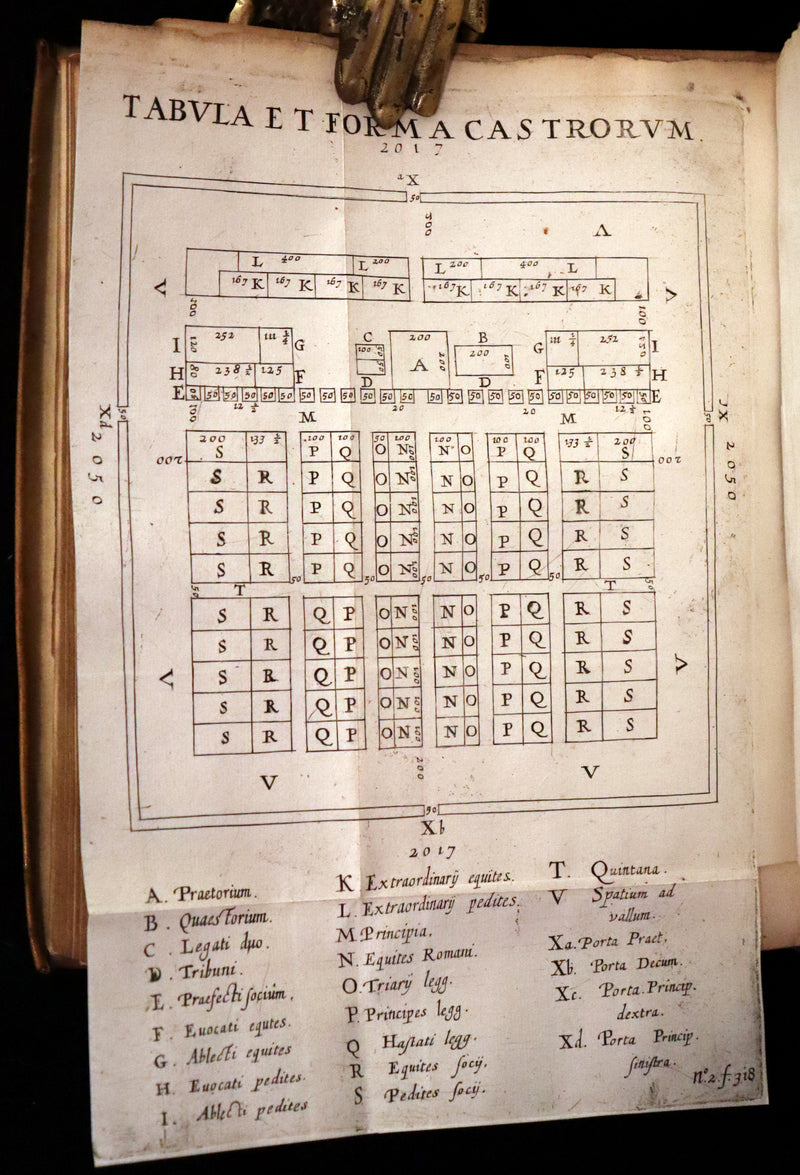 TABVLA ET FORMA CASTRORVM.
2017
aX
50
A
L 400 L 200 L 200 400 L
167 K 167 K 167 K 167 K 167 K 167 K 167 K 167 K
I 252 111 1/4 G C 200 B G 111 1/4 252 I
100 A 200
H 238 1/2 125 F D D F 125 238 1/2 H
E 50 50 50 50 50 50 50 50 50 50 50 50 50 50 50 50 50 50 E
12 1/2 M 20 20 M 12 1/2
Xd 2050
Xc 2050
200 133 1/3 100 100 50 100 100 100 100 133 1/3 200
200 S P Q O N N O P Q S 200
S R P Q O N N O P Q R S
S R P Q O N N O P Q R S
S R P Q O N N O P Q R S
S R P Q O N N O P Q R S
50 T 50 50 50 50 50 T 50
S R Q P O N N O P Q R S
S R Q P O N N O P Q R S
S R Q P O N N O P Q R S
S R Q P O N N O P Q R S
S R Q P O N N O P Q R S
V 200 V
50
Xb
2017
A. Praetorium.
B. Quaestorium.
C. Legati duo.
D. Tribuni.
E. Praefecti socium.
F Euocati equtes.
G. Ablecti equites
H Euocati pedites.
I. Ablecti pedites
K Extraordinarij equites.
L. Extraordinarij pedites.
M Principia.
N. Equites Romani.
O. Triarij legg.
P. Principes legg.
Q Hastati legg.
R Equites socij.
S Pedites socij.
T. Quintana.
V Spatium ad
vallum.
Xa. Porta Praet.
Xb. Porta Decum.
Xc. Porta Princip.
dextra.
Xd. Porta Princip
sinistra.
n.º 2. f. 318